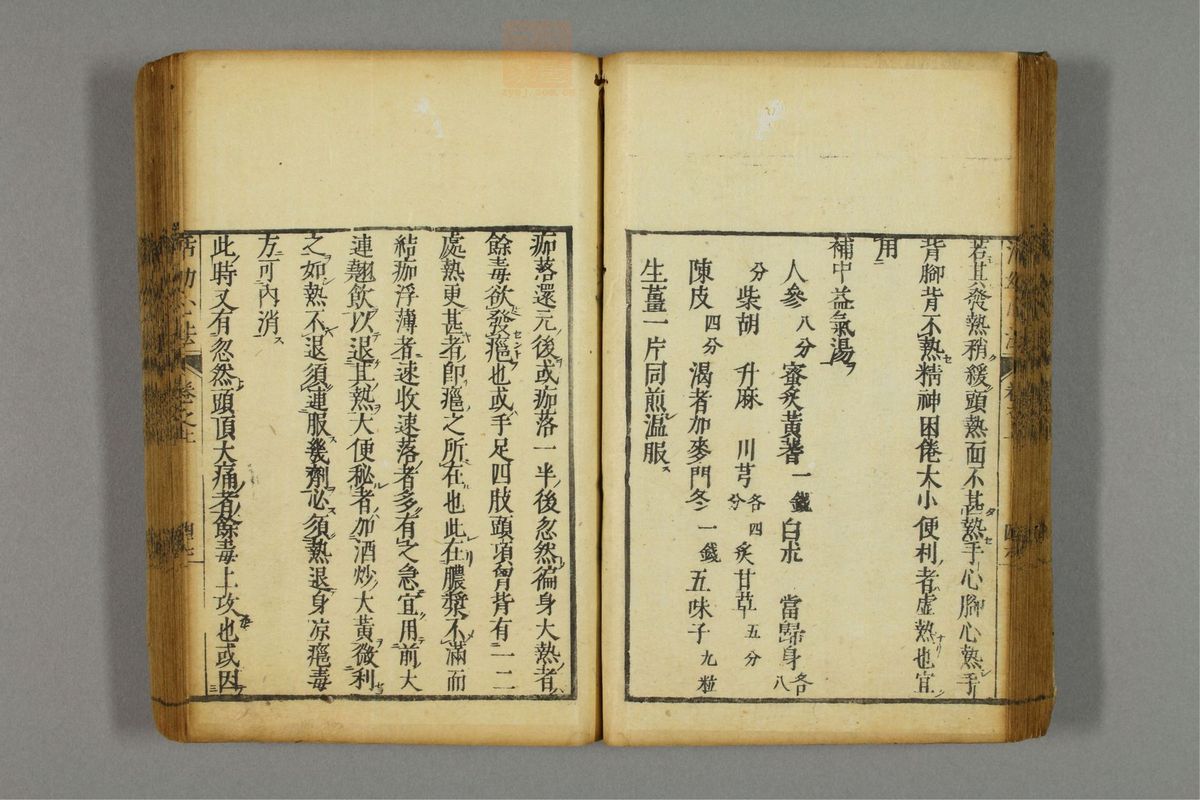 若其發熱稍緩頭熱而不甚熱手心脚心熱手
背脚背不熱精神困倦大小便利者虛熱也宜
用
補中益氣湯
人參八分蜜炙黃耆一錢白朮 當歸身各八
分柴胡 升麻 川芎各四分炙甘草五分
陳皮四分渴者加麥門冬一錢五味子九粒
生薑一片同煎温服ス
痂落還元後或痂落一半後忽然徧身大熱者
餘毒欲發瘟也或手足四肢頭項胷背有一二
處熱更甚者卽瘟之所在也此在膿漿不滿而
結痂浮薄者速收速落者多有之急宜用前大
連翹飲以退其熱大便秘者加酒炒大黃微利
之如熱不退須連服幾劑必須熱退身凉瘟毒
方可內消ス
此時又有忽然頭頂大痛者餘毒上攻也或因
活幼心法 卷之